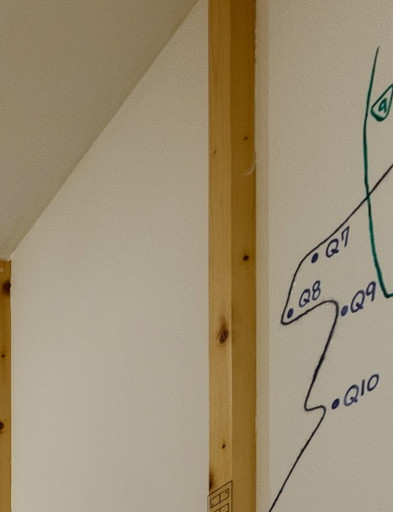 9
Q7
Q8
Q9
Q10